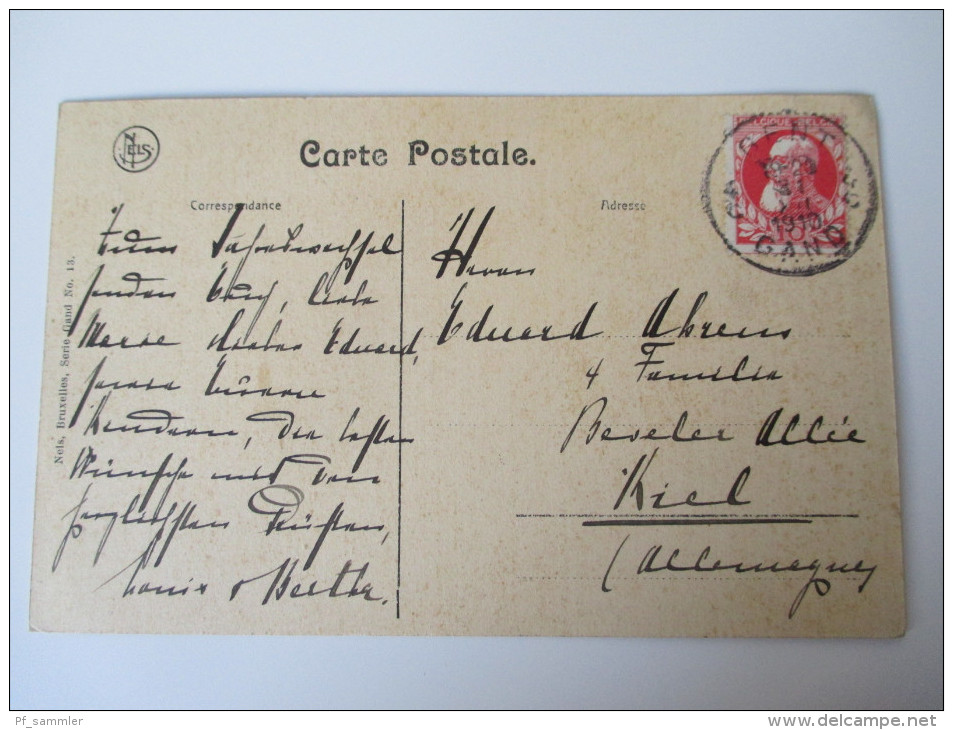 NELS.
Carte Postale.
Correspondance
Adresse
Nels, Bruxelles, Série Gand No. 13.
BELGIQUE BELGIË
GENT
1910
GAND
10
Zum Jahreswechsel
senden Euch, liebe
Marie lieber Eduard,
sowie Euren
Kindern, die besten
Wünsche mit den
herzlichsten Grüßen,
Louis & Berthe.
Herrn
Eduard Ahrens
& Familie
Beseler Allée
Kiel
(Allemagne)
Pf_sammler
www.delcampe.net